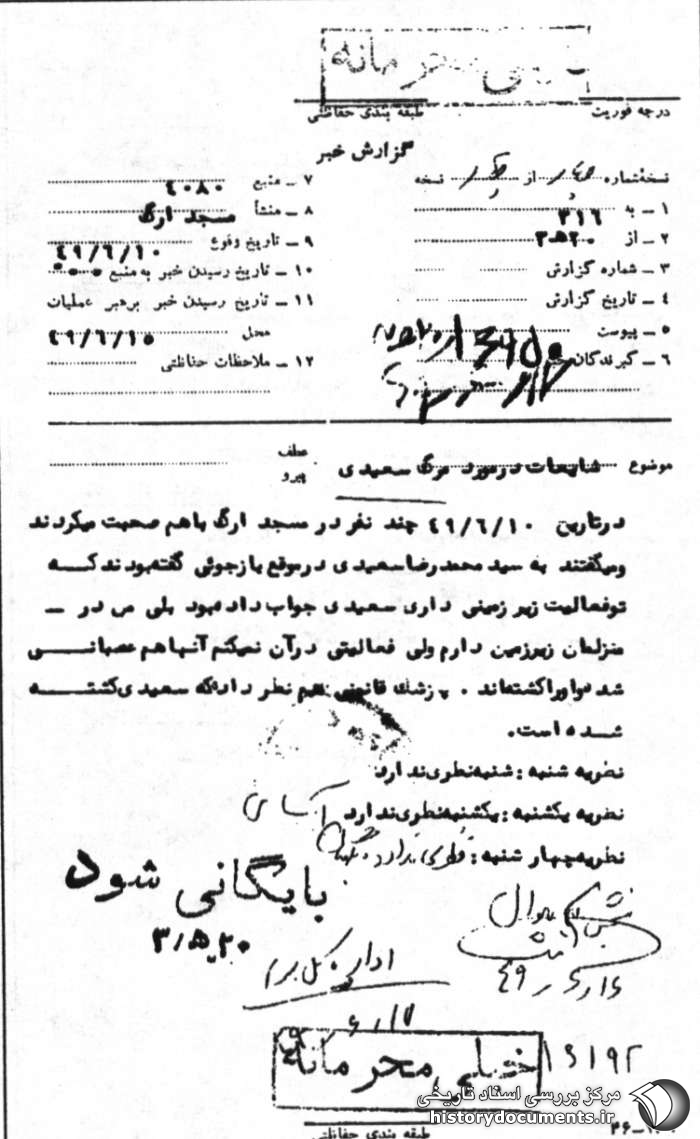 خیلی محرمانه
درجه فوریت
طبقه بندی حفاظتی
گزارش خبر
نسخه شماره از نسخه
۱ ـ به ۳۱۶
۲ ـ از ۲۰ ه ۳
۳ ـ شماره گزارش
۴ ـ تاریخ گزارش
۵ ـ پیوست
۶ ـ گیرندگان خبر
۷ ـ منبع ۴۰۸۰
۸ ـ منشأ مسجد ارگ
۹ ـ تاریخ وقوع ۴۹/۶/۱۰
۱۰ ـ تاریخ رسیدن خبر به منبع
۱۱ ـ تاریخ رسیدن خبر برهبر عملیات
محل ۴۹/۶/۱۵
۱۲ ـ ملاحظات حفاظتی
موضوع شایعات در مورد مرگ سعیدی
عطف
پیرو
در تاریخ ۴۹/۶/۱۰ چند نفر در مسجد ارگ باهم صحبت میکردند
ومیگفتند به سید محمد رضا سعیدی در موقع بازجوئی گفته بودند که
تو فعالیت زیر زمینی داری سعیدی جواب داده بود بلی من در ـ
منزلمان زیرزمین دارم ولی فعالیتی در آن نمیکنم آنها هم عصبانی
شده و او را کشته اند . پزشك قانونی هم نظر داده که سعیدی کشته
شده است.
نظریه شنبه : شنبه نظری ندارد
نظریه یکشنبه : یکشنبه نظری ندارد
نظریه چهار شنبه : نظری ندارد
بایگانی شود
۲۰ ه ۳
اداره کل سوم
۱۷ / ۶
خیلی محرمانه
۱۶۱۹۲
طبقه بندی حفاظتی
مرکز بررسی اسناد تاریخی
historydocuments.ir